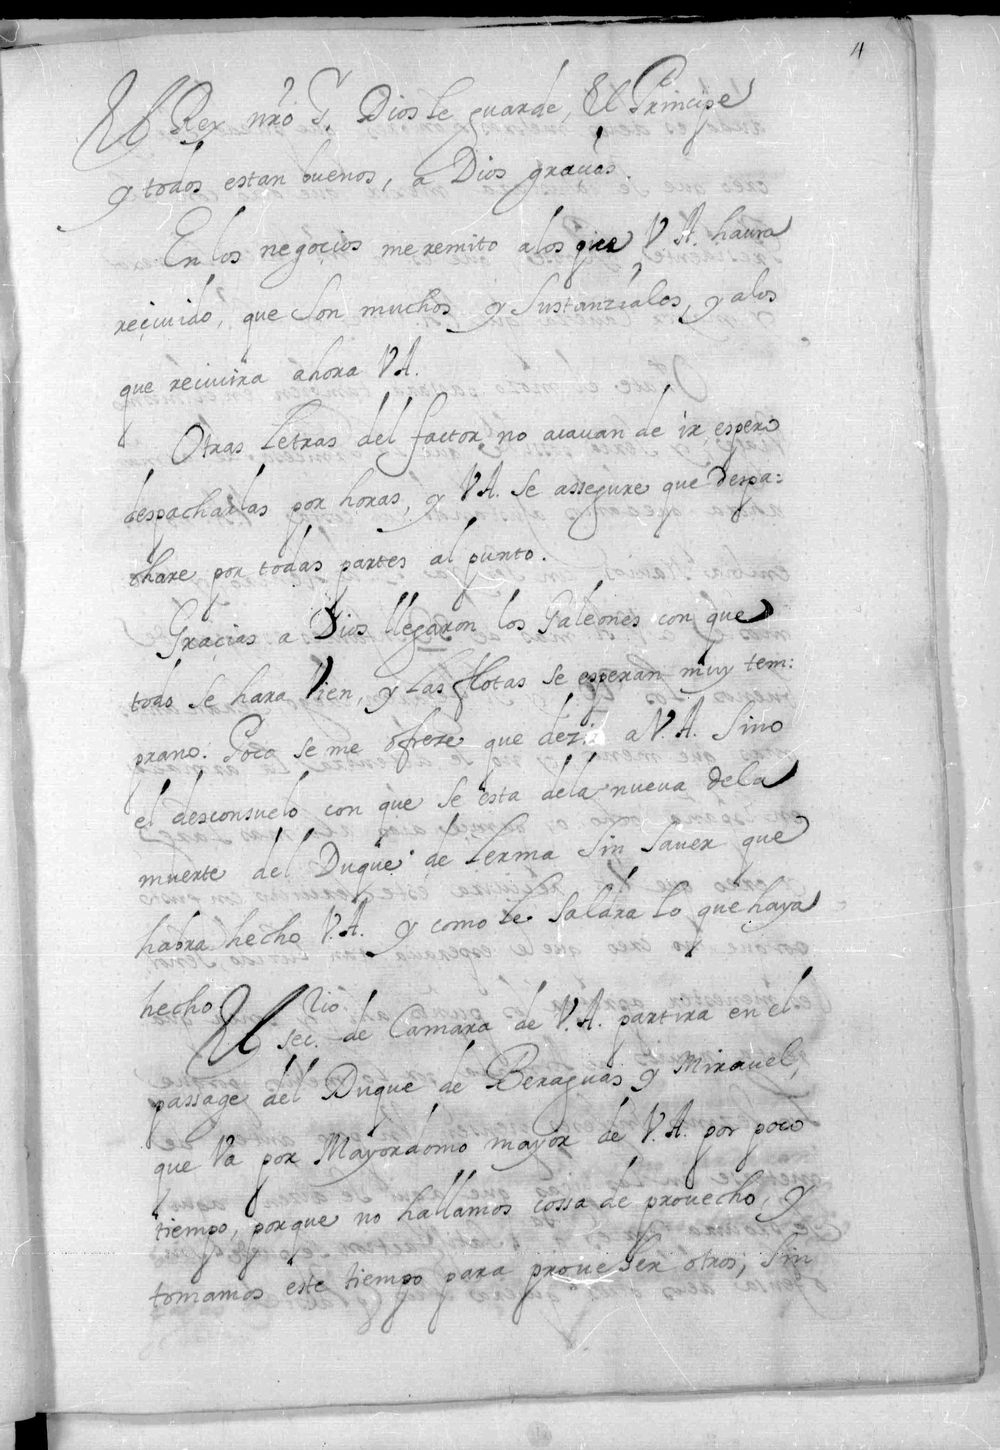 11
El Rey nro S.r Dios le guarde, El Principe
y todos estan buenos, a Dios graçias.
En los negocios me remito a los que V A. haura
reçiuido, que son muchos y sustanziales, y a los
que reciuira ahora V A.
Otras Letras del factor no acauan de ir, espero
despacharlas por horas, y V A. se assegure que despa:
chare por todas partes al punto.
Graçias a Dios llegaron los Galeones con que
todo se hara bien, y las flotas se esperan muy tem:
prano. Poco se me ofreze que dezir a V. A. Sino
el desconsuelo con que se esta dela nueua dela
muerte del Duque de Lerma sin sauer que
habra hecho V. A. y como le saldra lo que haya
hecho
El sec.rio de Camara de V. A. partira en el
passage del Duque de Beraguas y Mirauel,
que Va por Mayordomo mayor de V. A. por poco
tiempo, porque no hallamos cossa de prouecho, y
tomamos este tiempo para proueher otros, sin